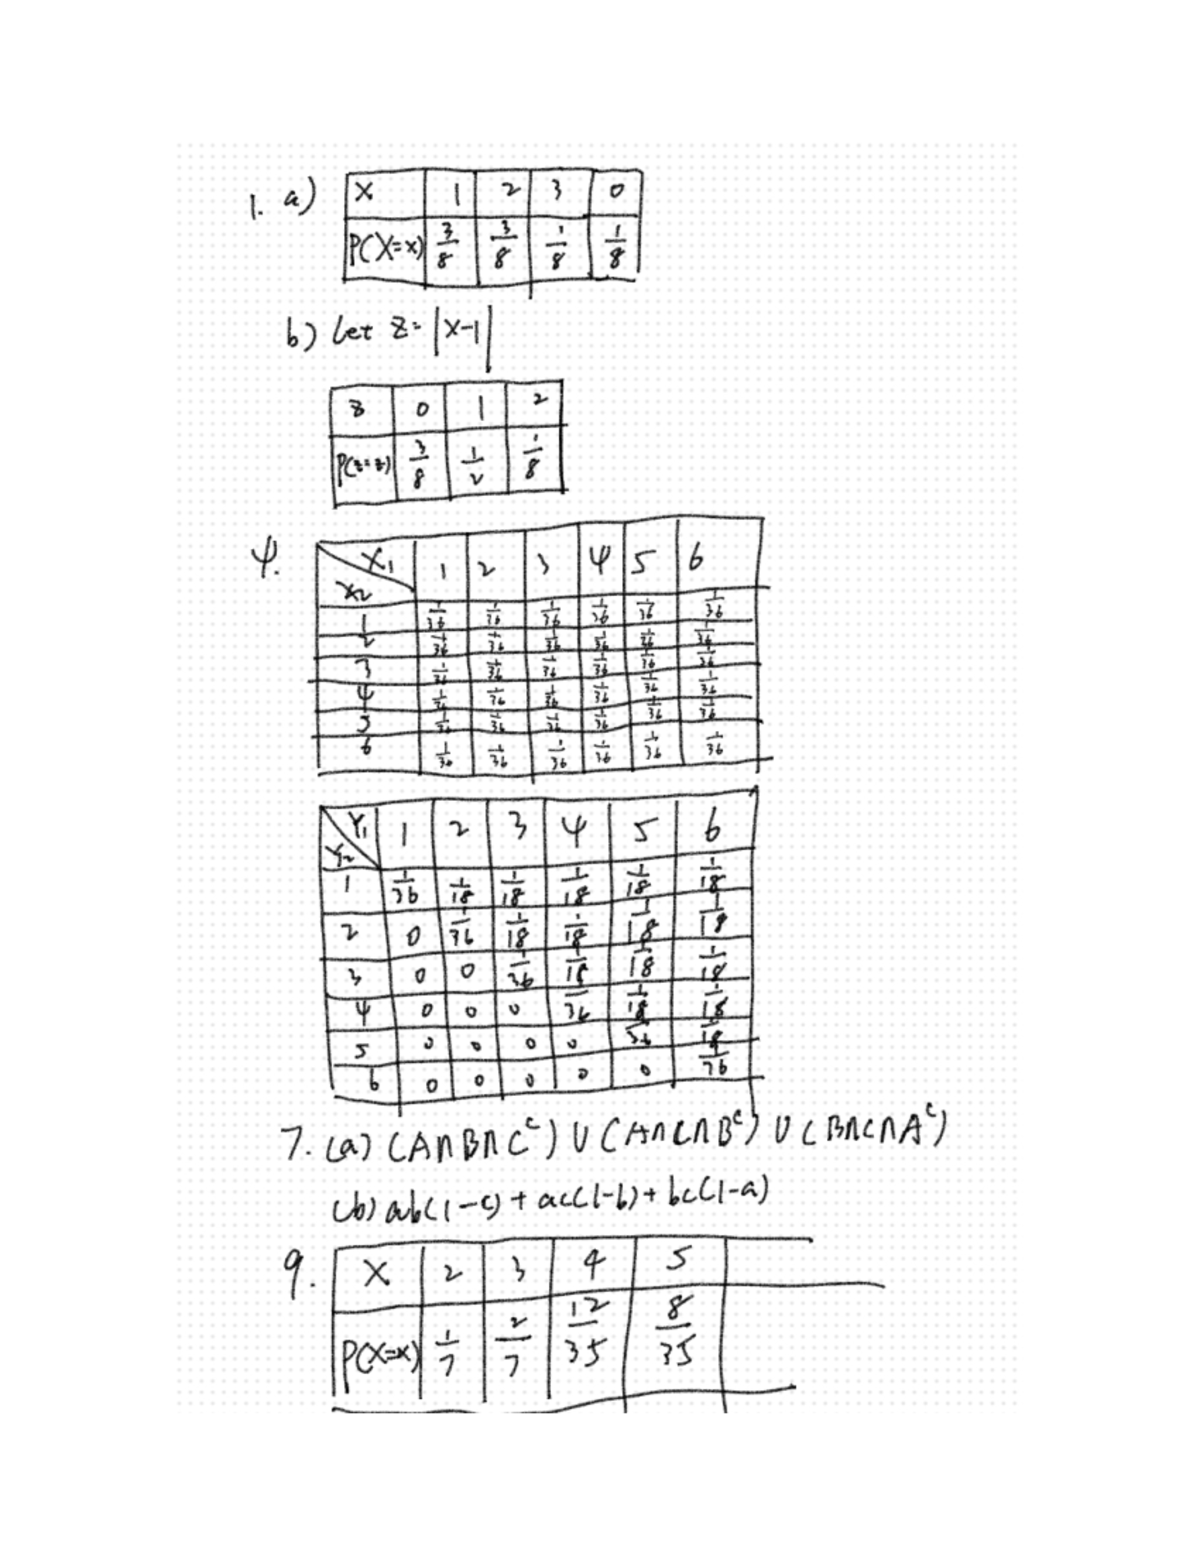 1. a) X 1 2 3 0
P(X=x) 3/8 3/8 1/8 1/8
b) Let Z = |X-1|
Z 0 1 2
P(Z=z) 3/8 1/2 1/8
4. X₁ 1 2 3 4 5 6
X₂
1 1/36 1/36 1/36 1/36 1/36 1/36
2 1/36 1/36 1/36 1/36 1/36 1/36
3 1/36 1/36 1/36 1/36 1/36 1/36
4 1/36 1/36 1/36 1/36 1/36 1/36
5 1/36 1/36 1/36 1/36 1/36 1/36
6 1/36 1/36 1/36 1/36 1/36 1/36
Y₁ 1 2 3 4 5 6
Y₂
1 1/36 1/18 1/18 1/18 1/18 1/18
2 0 1/36 1/18 1/18 1/18 1/18
3 0 0 1/36 1/18 1/18 1/18
4 0 0 0 1/36 1/18 1/18
5 0 0 0 0 1/36 1/18
6 0 0 0 0 0 1/36
7. (a) (A∩B∩Cᶜ) ∪ (A∩C∩Bᶜ) ∪ (B∩C∩Aᶜ)
(b) ab(1-c) + ac(1-b) + bc(1-a)
9. X 2 3 4 5
P(X=x) 1/7 2/7 12/35 8/35